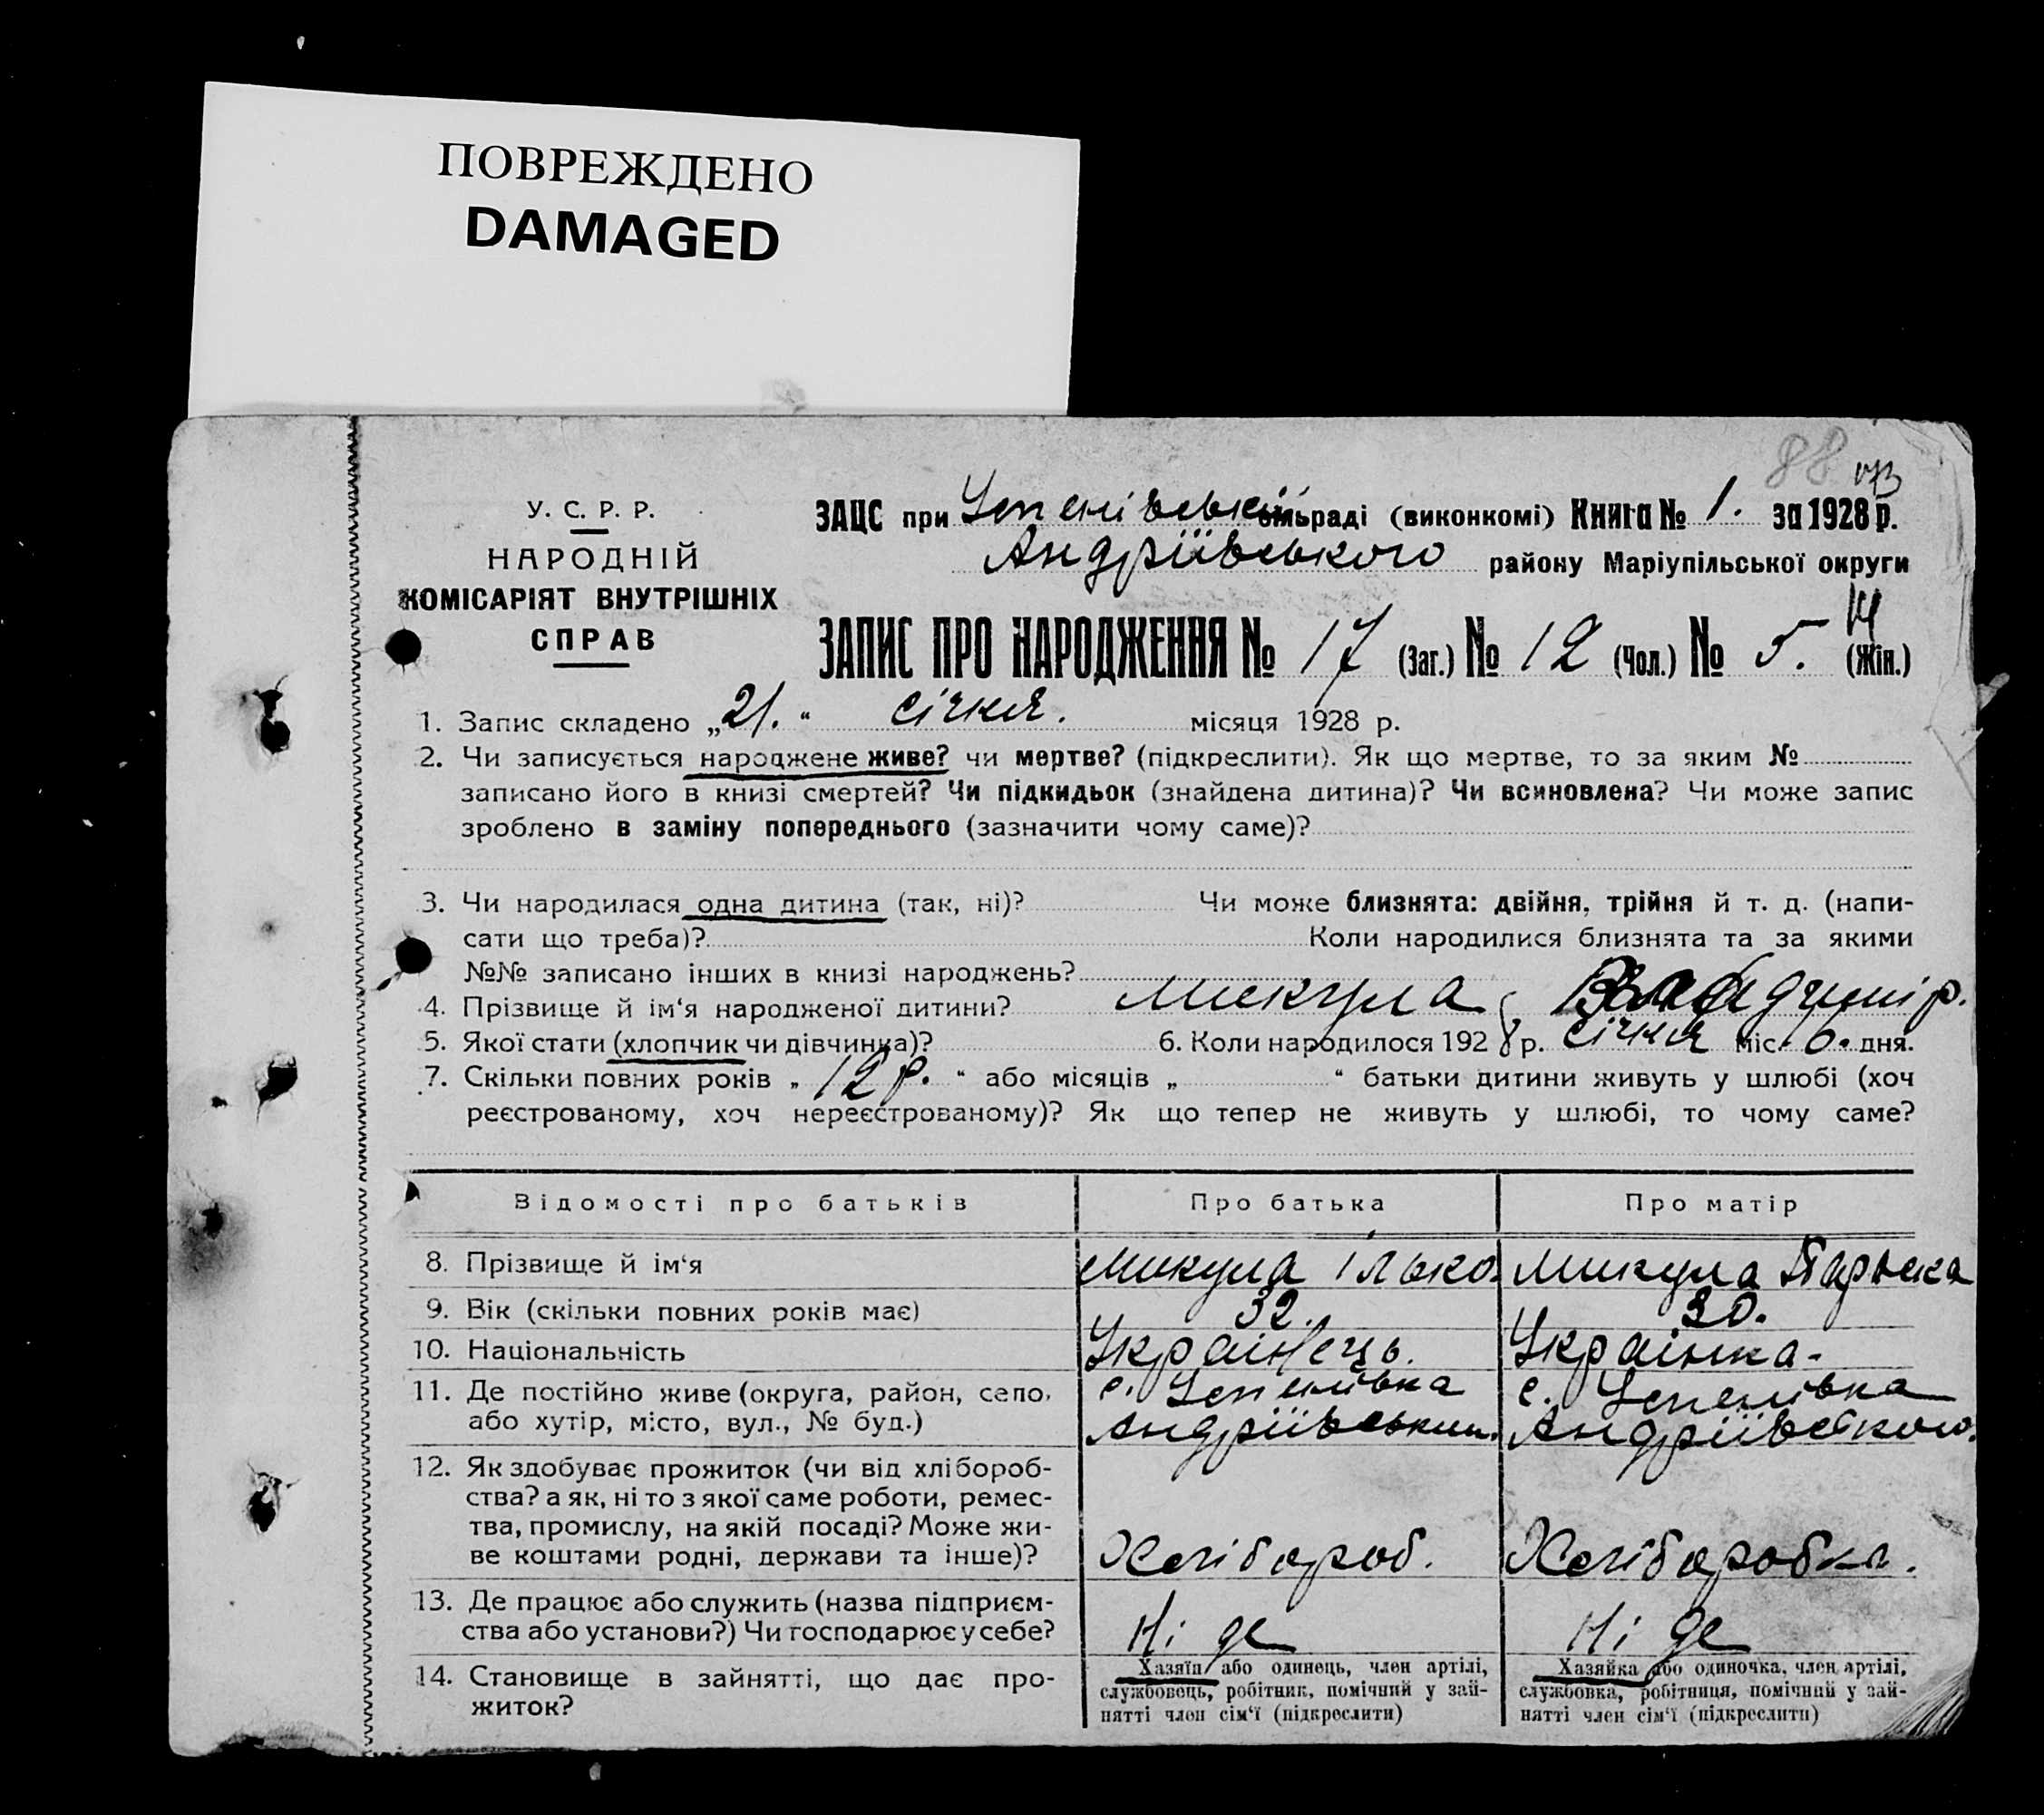 ПОВРЕЖДЕНО
DAMAGED
88
У. С. Р. Р.
НАРОДНІЙ
КОМІСАРІЯТ ВНУТРІШНІХ
СПРАВ
ЗАЦС при Успенівській сільраді (виконкомі) Книга № 1. за 1928 р.
Андріївського району Маріупільської округи
ЗАПИС ПРО НАРОДЖЕННЯ № 17 (Заг.) № 12 (Чол.) № 5. (Жін.)
1. Запис складено „21.“ січня. місяця 1928 р.
2. Чи записується народжене живе? чи мертве? (підкреслити). Як що мертве, то за яким №
записано його в книзі смертей? Чи підкидьок (знайдена дитина)? Чи всиновлена? Чи може запис
зроблено в заміну попереднього (зазначити чому саме)?
3. Чи народилася одна дитина (так, ні)? Чи може близнята: двійня, трійня й т. д. (напи-
сати що треба)? Коли народилися близнята та за якими
№№ записано інших в книзі народжень?
4. Прізвище й ім‘я народженої дитини? Микула Владимір.
5. Якої стати (хлопчик чи дівчинка)? 6. Коли народилося 1928 р. січня міс. 6. дня.
7. Скільки повних років „ 12 р. “ або місяців „ “ батьки дитини живуть у шлюбі (хоч
реєстрованому, хоч нереєстрованому)? Як що тепер не живуть у шлюбі, то чому саме?
Відомості про батьків Про батька Про матір
8. Прізвище й ім‘я Микула Ілько. Микула Парыска
9. Вік (скільки повних років має) 32. 30.
10. Національність Українець. Українка.
11. Де постійно живе (округа, район, село, с. Успенівка с. Успенівка
або хутір, місто, вул., № буд.) Андріївськи. Андріївського.
12. Як здобуває прожиток (чи від хлібороб-
ства? а як, ні то з якої саме роботи, ремес-
тва, промислу, на якій посаді? Може жи-
ве коштами родні, держави та інше)? Хлібороб. Хліборобка.
13. Де працює або служить (назва підприєм-
ства або установи?) Чи господарює у себе? Ні де Ні де
14. Становище в зайнятті, що дає про-
житок?
Хазяїн або одинець, член артілі,
службовець, робітник, помічний у зай-
нятті член сім‘ї (підкреслити)
Хазяйка або одиночка, член артілі,
службовка, робітниця, помічний у зай-
нятті член сім‘ї (підкреслити)